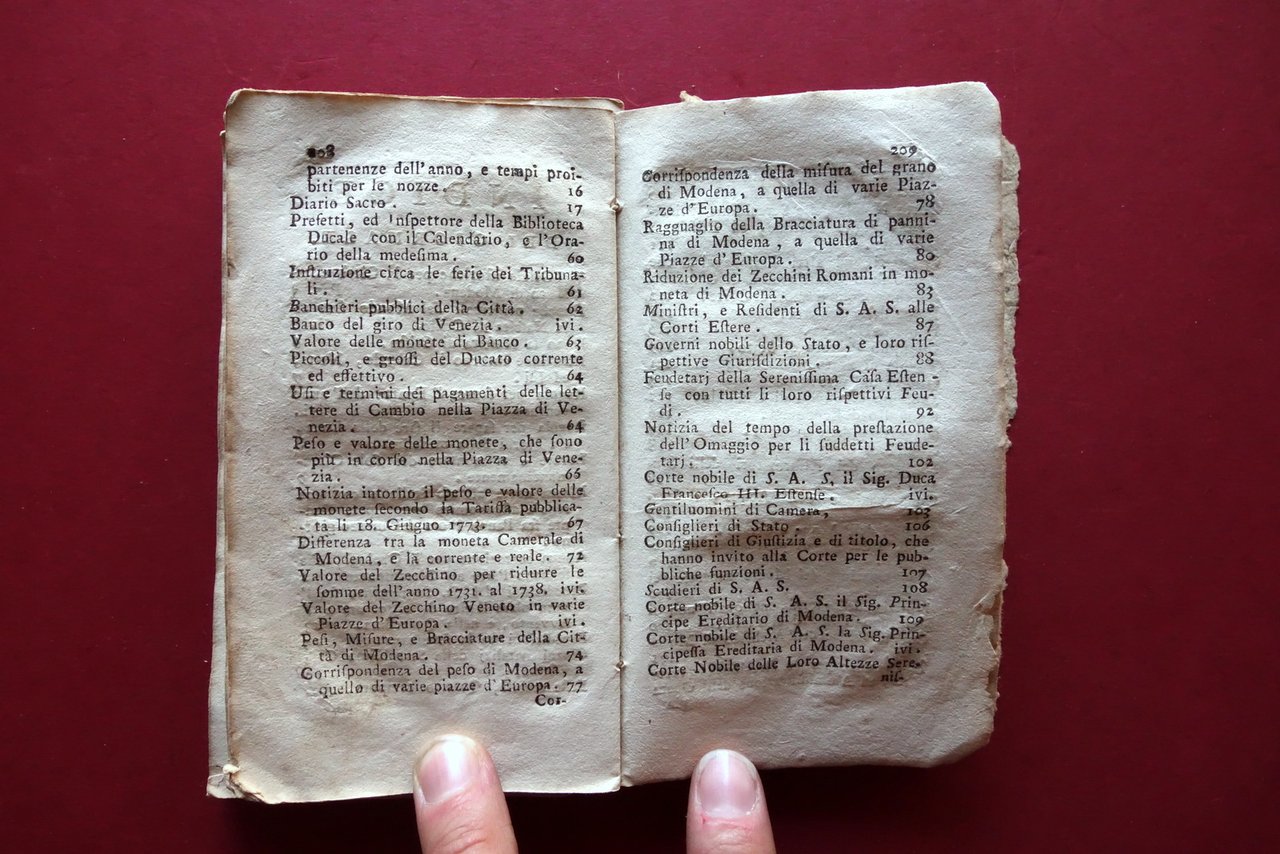 208
partenenze dell'anno, e tempi proi-
biti per le nozze. 16
Diario Sacro. 17
Prefetti, ed Inſpettore della Biblioteca
Ducale con il Calendario, e l'Ora-
rio della medeſima. 60
Inſtruzione circa le ferie dei Tribuna-
li. 61
Banchieri pubblici della Città. 62
Banco del giro di Venezia. ivi.
Valore delle monete di Banco. 63
Piccoli, e groſſi del Ducato corrente
ed effettivo. 64
Uſi e termini dei pagamenti delle let-
tere di Cambio nella Piazza di Ve-
nezia. 64
Peſo e valore delle monete, che ſono
più in corſo nella Piazza di Vene-
zia. 65
Notizia intorno il peſo e valore delle
monete ſecondo la Tariffa pubblica-
ta li 18. Giugno 1773. 67
Differenza tra la moneta Camerale di
Modena, e la corrente e reale. 72
Valore del Zecchino per ridurre le
ſomme dell'anno 1731. al 1738. ivi.
Valore del Zecchino Veneto in varie
Piazze d'Europa. ivi.
Peſi, Miſure, e Bracciature della Cit-
tà di Modena. 74
Corriſpondenza del peſo di Modena, a
quello di varie piazze d'Europa. 77
Cor-
209
Corriſpondenza della miſura del grano
di Modena, a quella di varie Piaz-
ze d'Europa. 78
Ragguaglio della Bracciatura di panni-
na di Modena, a quella di varie
Piazze d'Europa. 80
Riduzione dei Zecchini Romani in mo-
neta di Modena. 83
Miniſtri, e Reſidenti di S. A. S. alle
Corti Eſtere. 87
Governi nobili dello Stato, e loro riſ-
pettive Giuriſdizioni. 88
Feudetarj della Sereniſſima Caſa Eſten-
ſe con tutti li loro riſpettivi Feu-
di. 92
Notizia del tempo della preſtazione
dell'Omaggio per li ſuddetti Feude-
tarj. 102
Corte nobile di S. A. S. il Sig. Duca
Franceſco III. Eſtenſe. ivi.
Gentiluomini di Camera, 103
Conſiglieri di Stato. 106
Conſiglieri di Giuſtizia e di titolo, che
hanno invito alla Corte per le pub-
bliche funzioni. 107
Scudieri di S. A. S. 108
Corte nobile di S. A. S. il Sig. Prin-
cipe Ereditario di Modena. 109
Corte nobile di S. A. S. la Sig. Prin-
cipeſſa Ereditaria di Modena. ivi.
Corte Nobile delle Loro Altezze Sere-
niſ-